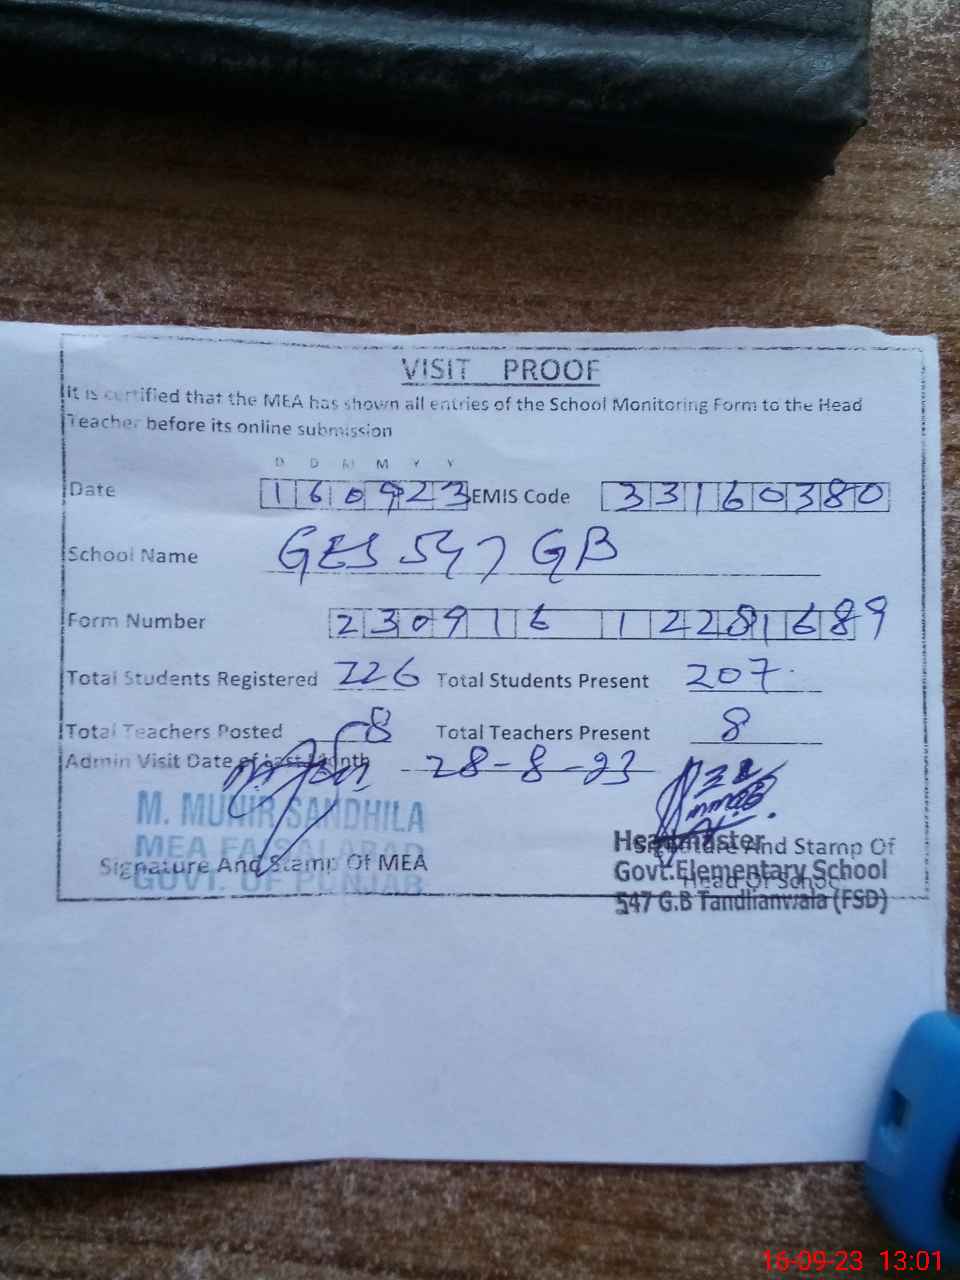 VISIT PROOF
It is certified that the MEA has shown all entries of the School Monitoring Form to the Head
Teacher before its online submission
D D M M Y Y
Date 160923 EMIS Code 33160380
School Name GES 547 GB
Form Number 230916 12281689
Total Students Registered 226 Total Students Present 207
Total Teachers Posted 8 Total Teachers Present 8
Admin Visit Date of Last Month 28-8-23
M. MUNIR SANDHILA
MEA FAISALABAD
GOVT. OF PUNJAB
Signature And Stamp Of MEA
Signature And Stamp Of
Head Of School
Headmaster
Govt.Elementary School
547 G.B Tandlianwala (FSD)
16-09-23 13:01